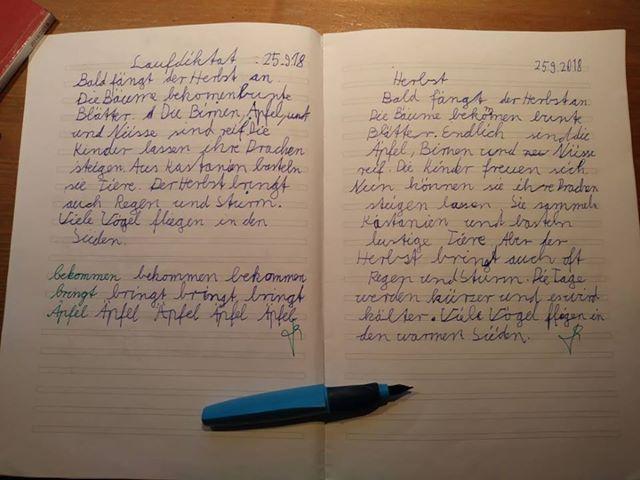 Laufdiktat 25.9.18
Bald fängt der Herbst an
Die Bäume bekomen bunte
Blätter. Die Birnen, Äpfel und
und Nüsse sind reif. Die
Kinder lassen ihre Drachen
steigen. Aus Kastanien basteln
sie Tiere. Der Herbst bringt
auch Regen und Sturm.
Viele Vögel fliegen in den
Süden.
bekommen bekommen bekommen
bringt bringt bringt, bringt
Äpfel Äpfel Äpfel Äpfel Äpfel
25.9.2018
Herbst
Bald fängt der Herbst an.
Die Bäume bekomen bunte
Blätter. Endlich sind die
Äpfel, Birnen und Nüsse
reif. Die Kinder freuen sich.
Nun können sie ihre Drachen
steigen lassen. Sie sammeln
Kastanien und basteln
lustige Tiere. Aber der
Herbst bringt auch oft
Regen und Sturm. Die Tage
werden kürzer und es wird
kälter. Viele Vögel fliegen in
den warmen Süden.